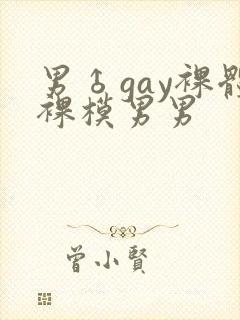 男♂gay裸體
裸模男男
曾小賢